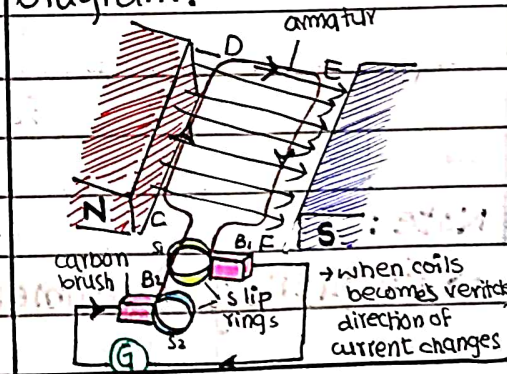 Diagram:
armatur
D
E
N
C
S
S1
B1
F
carbon
brush
B2
slip
rings
S2
G
→ when coils
becomes
direction of
current changes